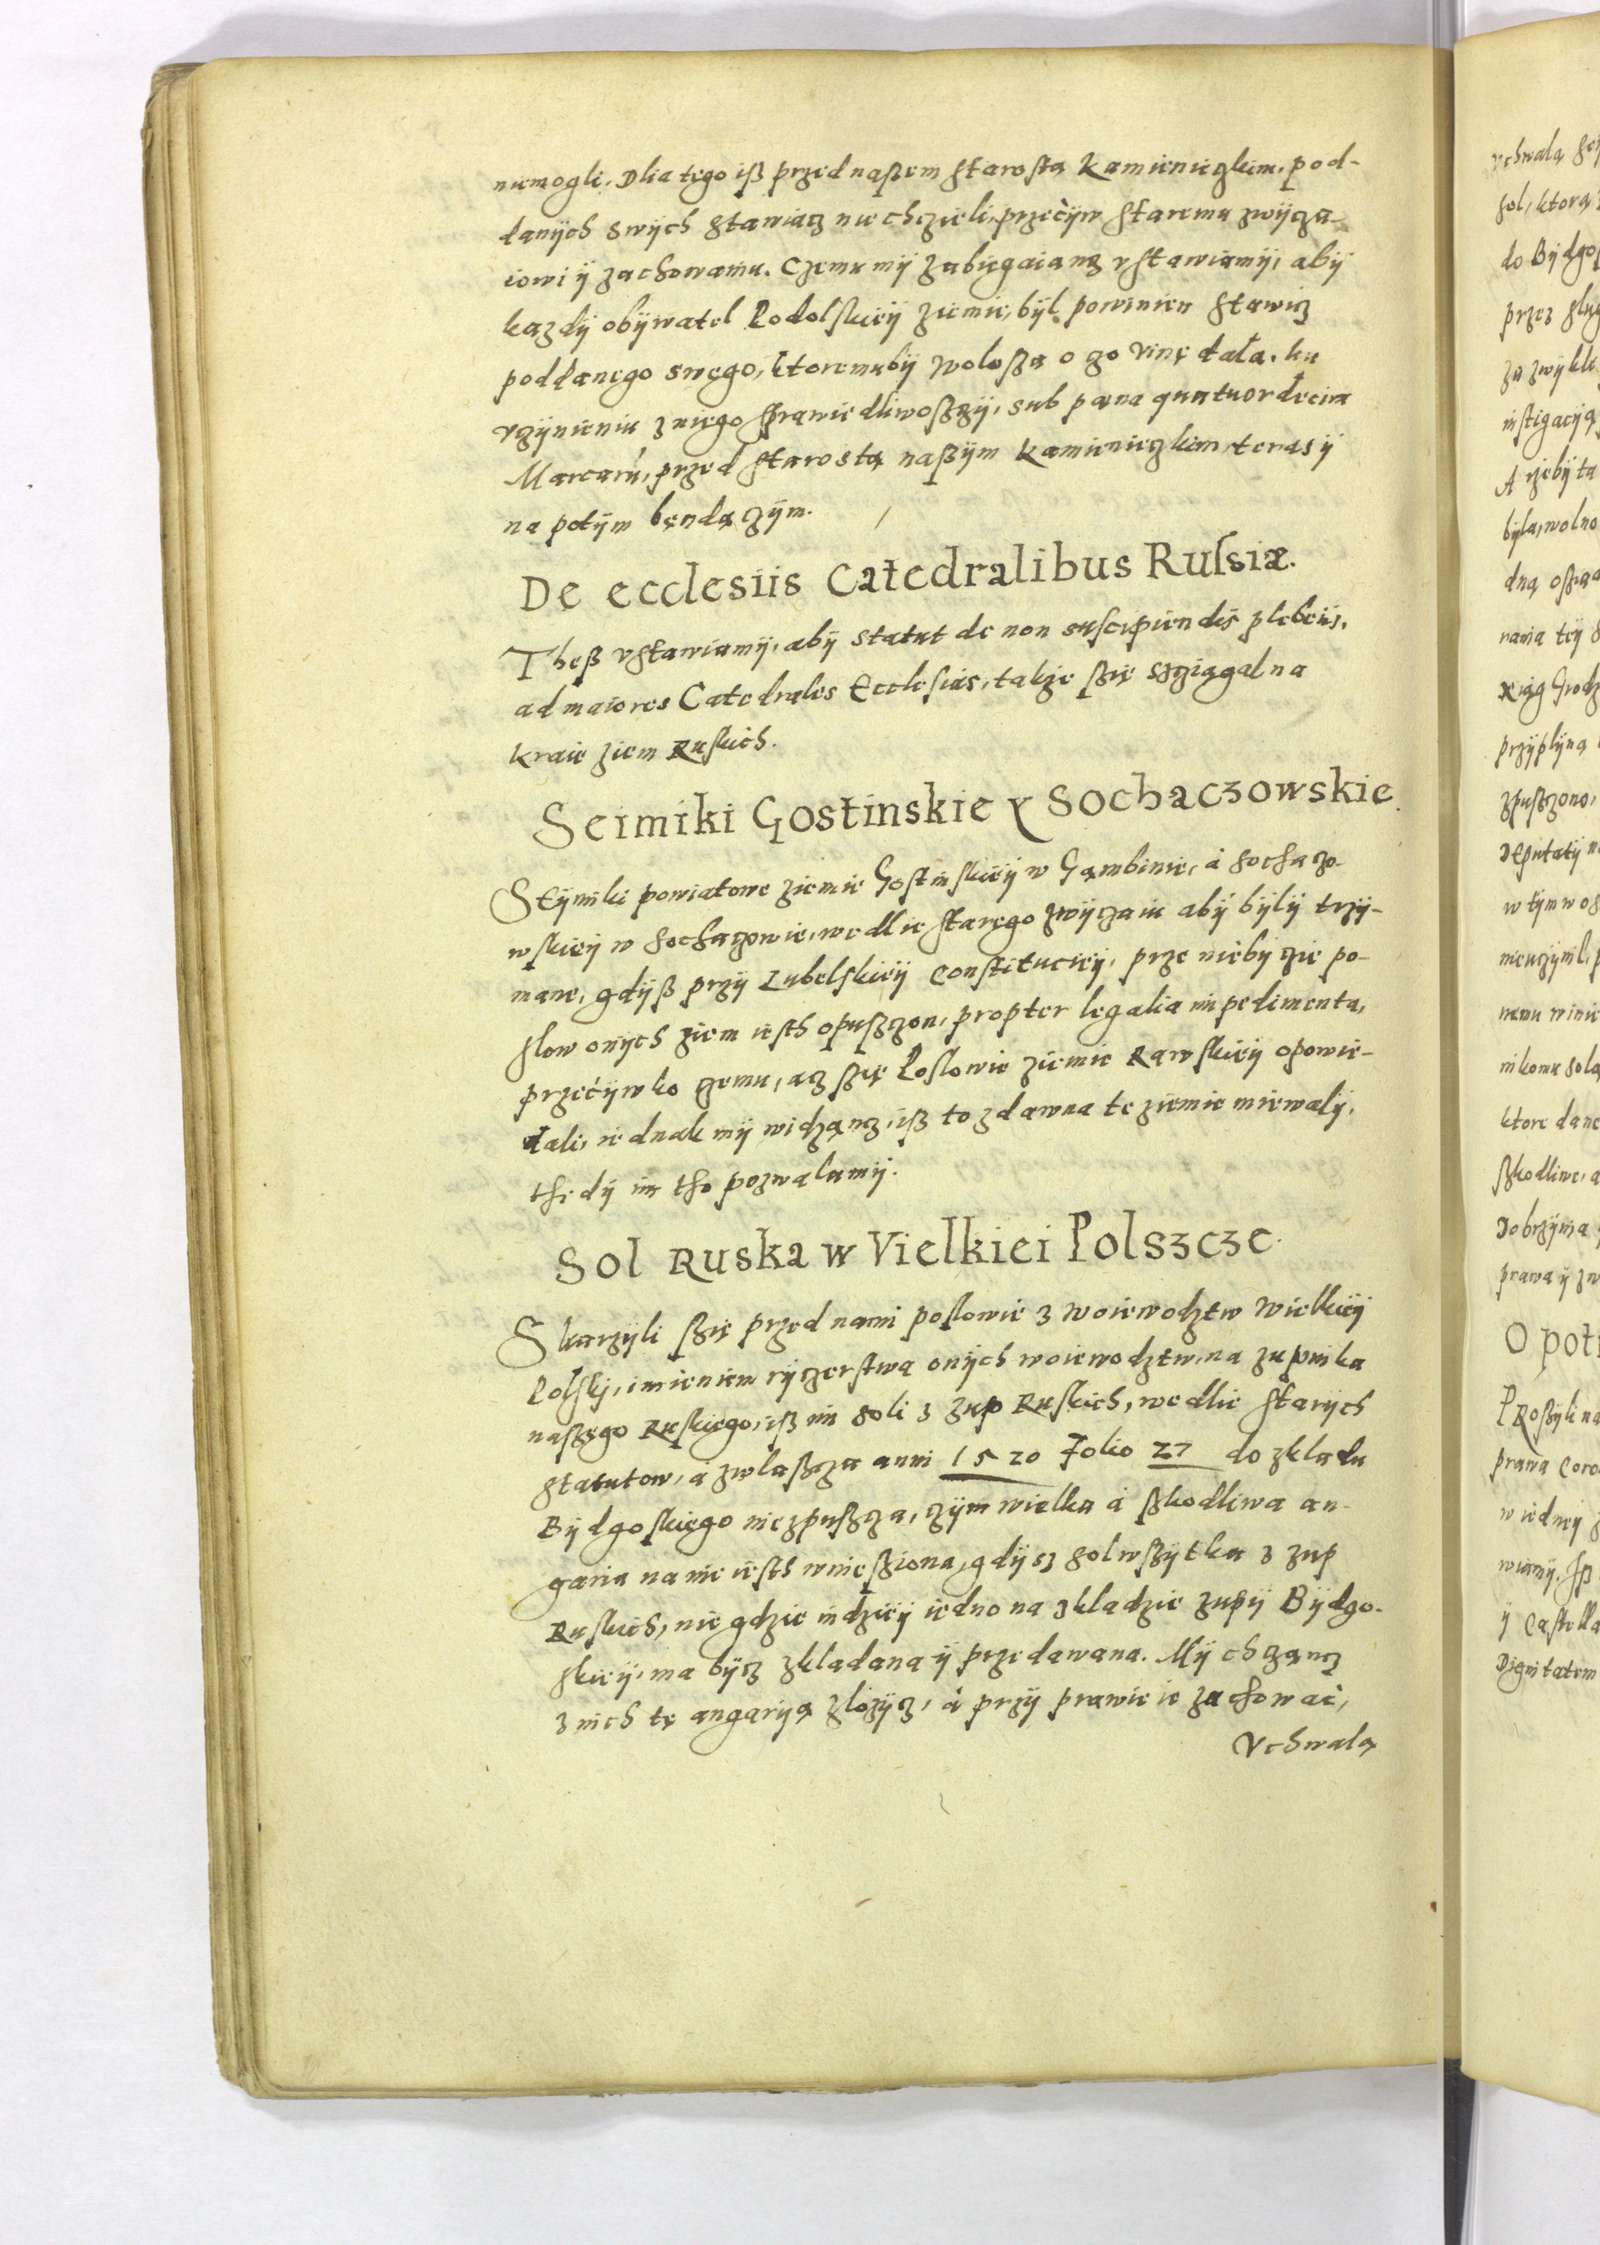 niemogli. Dlia tego iß przed naßem starostą Kamienieczkim. pod-
danÿch swÿch stawiacz nie chczieli, przeċÿw staremu zwÿcza-
iowi ÿ zachowaniu. Czemu mÿ zabiegaiancz vstawiamÿ, abÿ
kazdÿ obÿwatel Podolskieÿ ziemie, bÿl powinien stawicz
poddanego swego, ktoremubÿ Woloßa o czo vinę dała. ku
vczÿnieniu z niego sprawiedliwoßczÿ, sub pœna quatuordecim
Marcarū, przed starostą naßÿm Kamienieczkim teras ÿ
na potÿm bęndączÿm.
De ecclesiis Catedralibus Russiæ.
Theß vstawiamÿ, abÿ statut de non suscipiendis plebeiis,
ad maiores Catedrales Ecclesias, takze ßię scziągal na
kraie ziem Ruskich.
Seimiki Gostinskie Y Sochaczowskie.
SEÿmiki powiatowe ziemie Gostinskieÿ w Gąmbinie, á sochaczo-
wskieÿ w sochaczowie, wedlie starego zwÿczaiu abÿ bÿlÿ trzÿ-
mane, gdÿß przÿ Lubelskieÿ Constitucieÿ, prze niebÿczie po-
slow onÿch ziem iesth opußczon, propter legalia impedimenta,
przeċÿwko czemu, acz ßię Poslowie ziemie Rawskieÿ opowie-
dali, iednak mÿ widząncz, iß to zdawna te ziemie miewalÿ,
thedÿ im tho pozwalamÿ.
Sol Ruska w Vielkiei Polszcze.
Skarzÿli ßię przed nami poslowie z woiewodztw wielkieÿ
Polskÿ, imieniem rÿczerstwa onÿch woiewodztw, na zupnika
naßego Ruskiego, iß im soli z zup Ruskich, wedlie starÿch
statutow, á zwlaßcza anni 1520 Folio 27 do zkladu
Bÿdgoskiego niezpußcza, czÿm wielka á ßkodliwa an-
garia na nie iesth wnießiona, gdÿsz sol wßÿtka z zup
Ruskich, nie gdzie indzieÿ iedno na zkladzie zupÿ Bÿdgo-
skieÿ, ma bÿcz zkladana ÿ przedawana. Mÿ chcząncz
z nich tę angarÿą zlozÿcz, á przÿ prawie ie zachowac,
Vchwalą